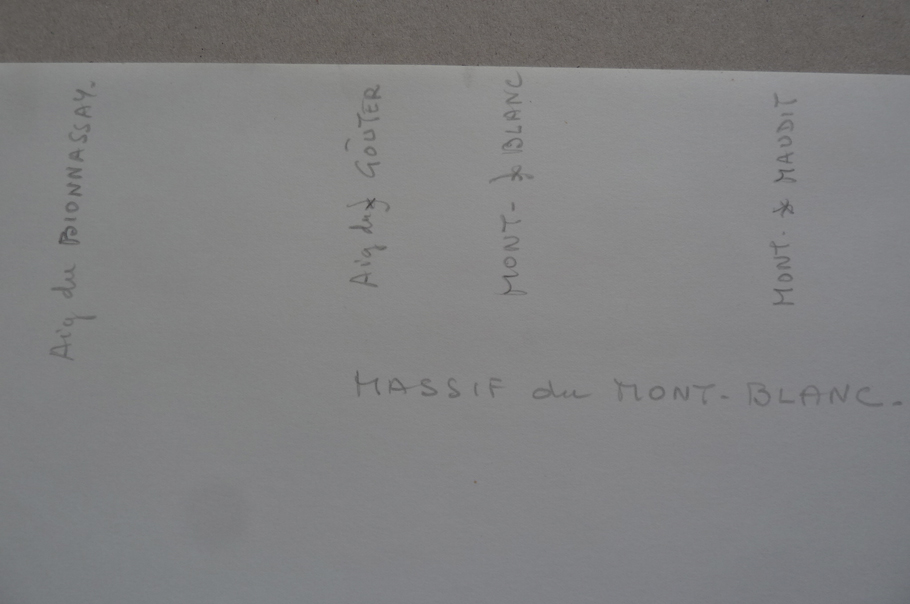 Aig du BIONNASSAY.
Aig du GOÛTER
MONT - BLANC
MONT - MAUDIT
MASSIF du MONT - BLANC.